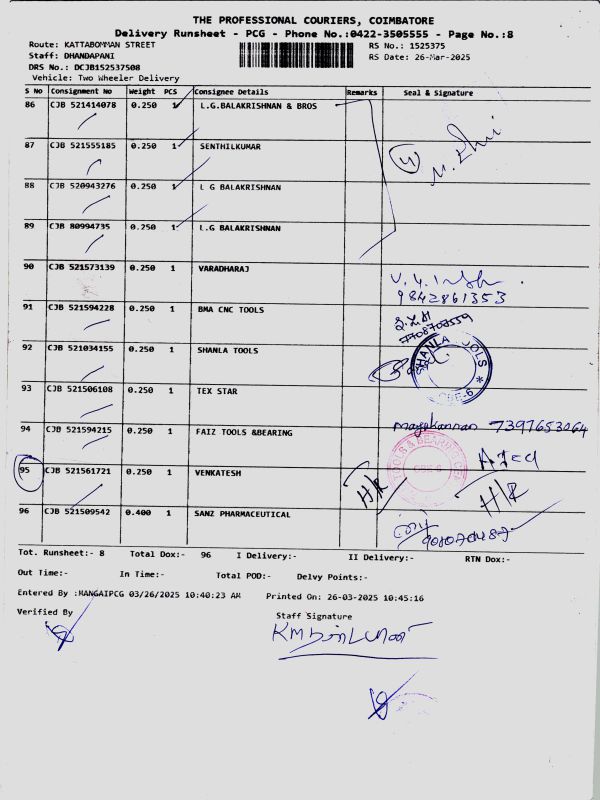 THE PROFESSIONAL COURIERS, COIMBATORE
Delivery Runsheet - PCG - Phone No.:0422-3505555 - Page No.:8
Route: KATTABOMMAN STREET RS No.: 1525375
Staff: DHANDAPANI RS Date: 26-Mar-2025
DRS No.: DCJB152537508
Vehicle: Two Wheeler Delivery
S No Consignment No Weight PCS Consignee Details Remarks Seal & Signature
86 CJB 521414078 0.250 1 L.G.BALAKRISHNAN & BROS
87 CJB 521555185 0.250 1 SENTHILKUMAR
4
88 CJB 520943276 0.250 1 L G BALAKRISHNAN
89 CJB 80994735 0.250 1 L.G BALAKRISHNAN
90 CJB 521573139 0.250 1 VARADHARAJ
9842861353
91 CJB 521594228 0.250 1 BMA CNC TOOLS
7708707559
92 CJB 521034155 0.250 1 SHANLA TOOLS
SHANLA TOOLS
CBE-6
93 CJB 521506108 0.250 1 TEX STAR
94 CJB 521594215 0.250 1 FAIZ TOOLS &BEARING
7397653064
TOOLS & BEARING
CBE-6
95 CJB 521561721 0.250 1 VENKATESH H/R
H/R
96 CJB 521509542 0.400 1 SANZ PHARMACEUTICAL
Tot. Runsheet:- 8 Total Dox:- 96 I Delivery:- II Delivery:- RTN Dox:-
Out Time:- In Time:- Total POD:- Delvy Points:-
Entered By :MANGAIPCG 03/26/2025 10:40:23 AM Printed On: 26-03-2025 10:45:16
Verified By Staff Signature